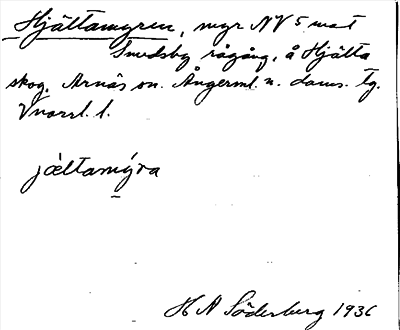 Hjältamyren, myr NV 5 mot
Smedsby rågång, å Hjälta
skog. Arnäs sn. Ångerml. n. doms. tg.
Vnorrl. l.
jæltamýra
H A Söderberg 1936